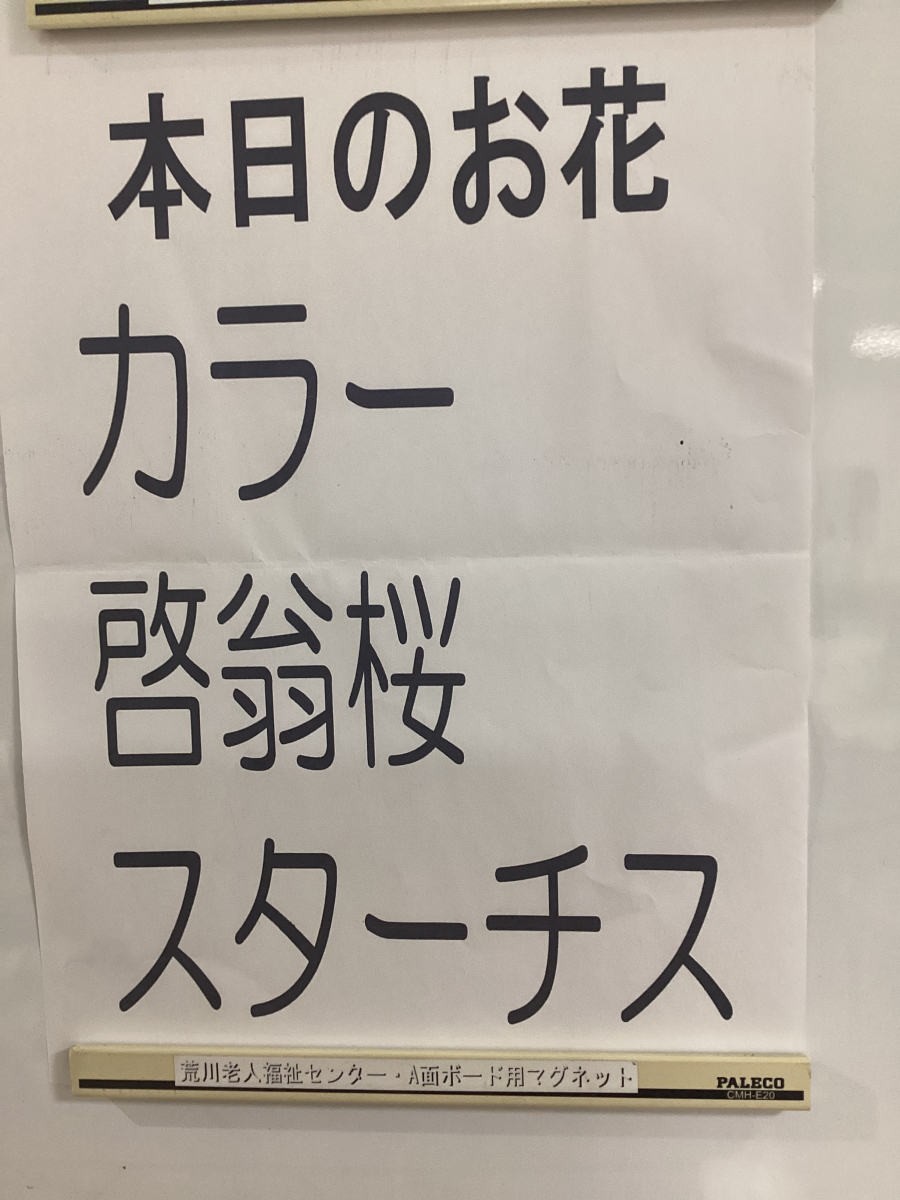 本日のお花
カラー
啓翁桜
スターチス
荒川老人福祉センター・A面ボード用マグネット
PALECO
CMH-E20